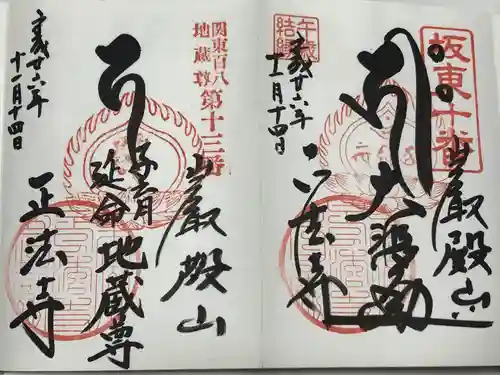 坂東十番
午歳結縁
平成廿六年
十一月十四日
巖殿山
正法寺
関東百八
地蔵尊
第十三番
平成廿六年
十一月十四日
巖殿山
子育
延命
地蔵尊
正法寺